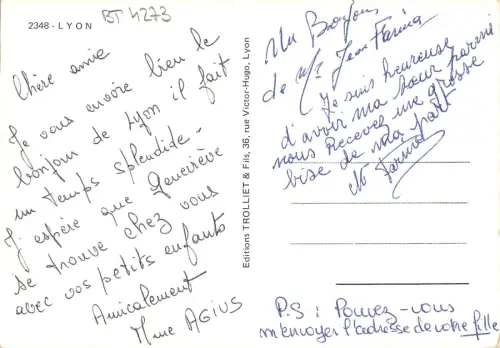 2348 - LYON
BT 4273
Chère amie
Je vous envoie bien le
bonjour de Lyon il fait
un temps splendide -
J'espère que Geneviève
se trouve chez vous
avec vos petits enfants
Amicalement
Mme AGIUS
Editions TROLLIET & Fils, 36, rue Victor-Hugo, Lyon
Un Bonjour
de Mr Jean Farina
Je suis heureuse
d'avoir ma sœur parmi
nous Recevez une grosse
bise de ma part
Farina
P.S : Pouvez-vous
m'envoyer l'adresse de votre fille